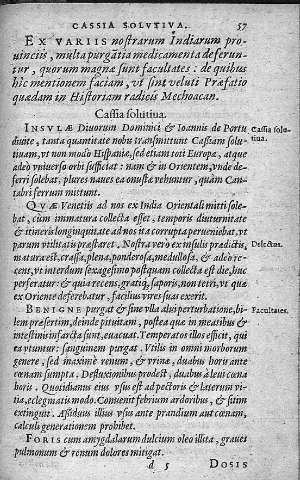 CASSIA SOLUTIVA. 57
EX VARIIS nostrarum Indiarum pro-
uinciis, multa purgatia medicamenta deferun-
tur, quorum magnæ sunt facultates: de quibus
hîc mentionem faciam, vt sint veluti Præfatio
quædam in Historiam radicis Mechoacan.
Cassia solutiua.
INSVLÆ Diuorum Dominici & Ioannis de Portu
diuite, tanta quantitate nobu transmittunt Cassiam solu-
tiuam, vt non modò Hispaniæ, sed etiam toti Europæ, atque
adeò vniuerso orbi sufficiat: nam & in Orientem, vnde de-
ferri solebat, plures naues ea onustæ vehuntur, quàm Can-
tabri ferrum mittunt.
Cassia solu-
tiua.
QVÆ Venetiis ad nos ex India Orientali mitti sole-
bat, cùm immatura collecta esset, temporis diuturnitate
& itineris longinquitate ad nos ita corrupta perueniebat, vt
parum vtilitatis præstaret. Nostra verò ex insulis prædictis,
matura est, crassa, plena, ponderosa, medullosa, & adeò re-
cens, vt interdum sexagesimo postquam collecta est die, huc
perferatur: & quia recens, gratiq́; saporis, non tetri, vt quæ
ex Oriente deferebatur, facilius vires suas exerit.
Delectus.
BENIGNE purgat & sine vlla alui perturbatione, bi-
lem præsertim, deinde pituitam, postea quæ in meatibus &
intestinis infarcta sunt, euacuat. Temperatos illos efficit, qui
ea vtuntur: sanguinem purgat. Vtilis in omni morborum
genere, sed maximè renum, & vrinæ, duabus horis ante
cœnam sumpta. Defluxionibus prodest, duabus à leui cœna
horis. Quotidianus eius vsus est ad pectoris & laterum vi-
tia, eclegmatis modo. Conuenit febrium ardoribus, & sitim
extinguit. Assiduus illius vsus ante prandium aut cœnam,
calculi generationem prohibet.
Facultates.
FORIS cum amygdalarum dulcium oleo illita, graues
pulmonum & renum dolores mitigat.
d 5 DOSIS